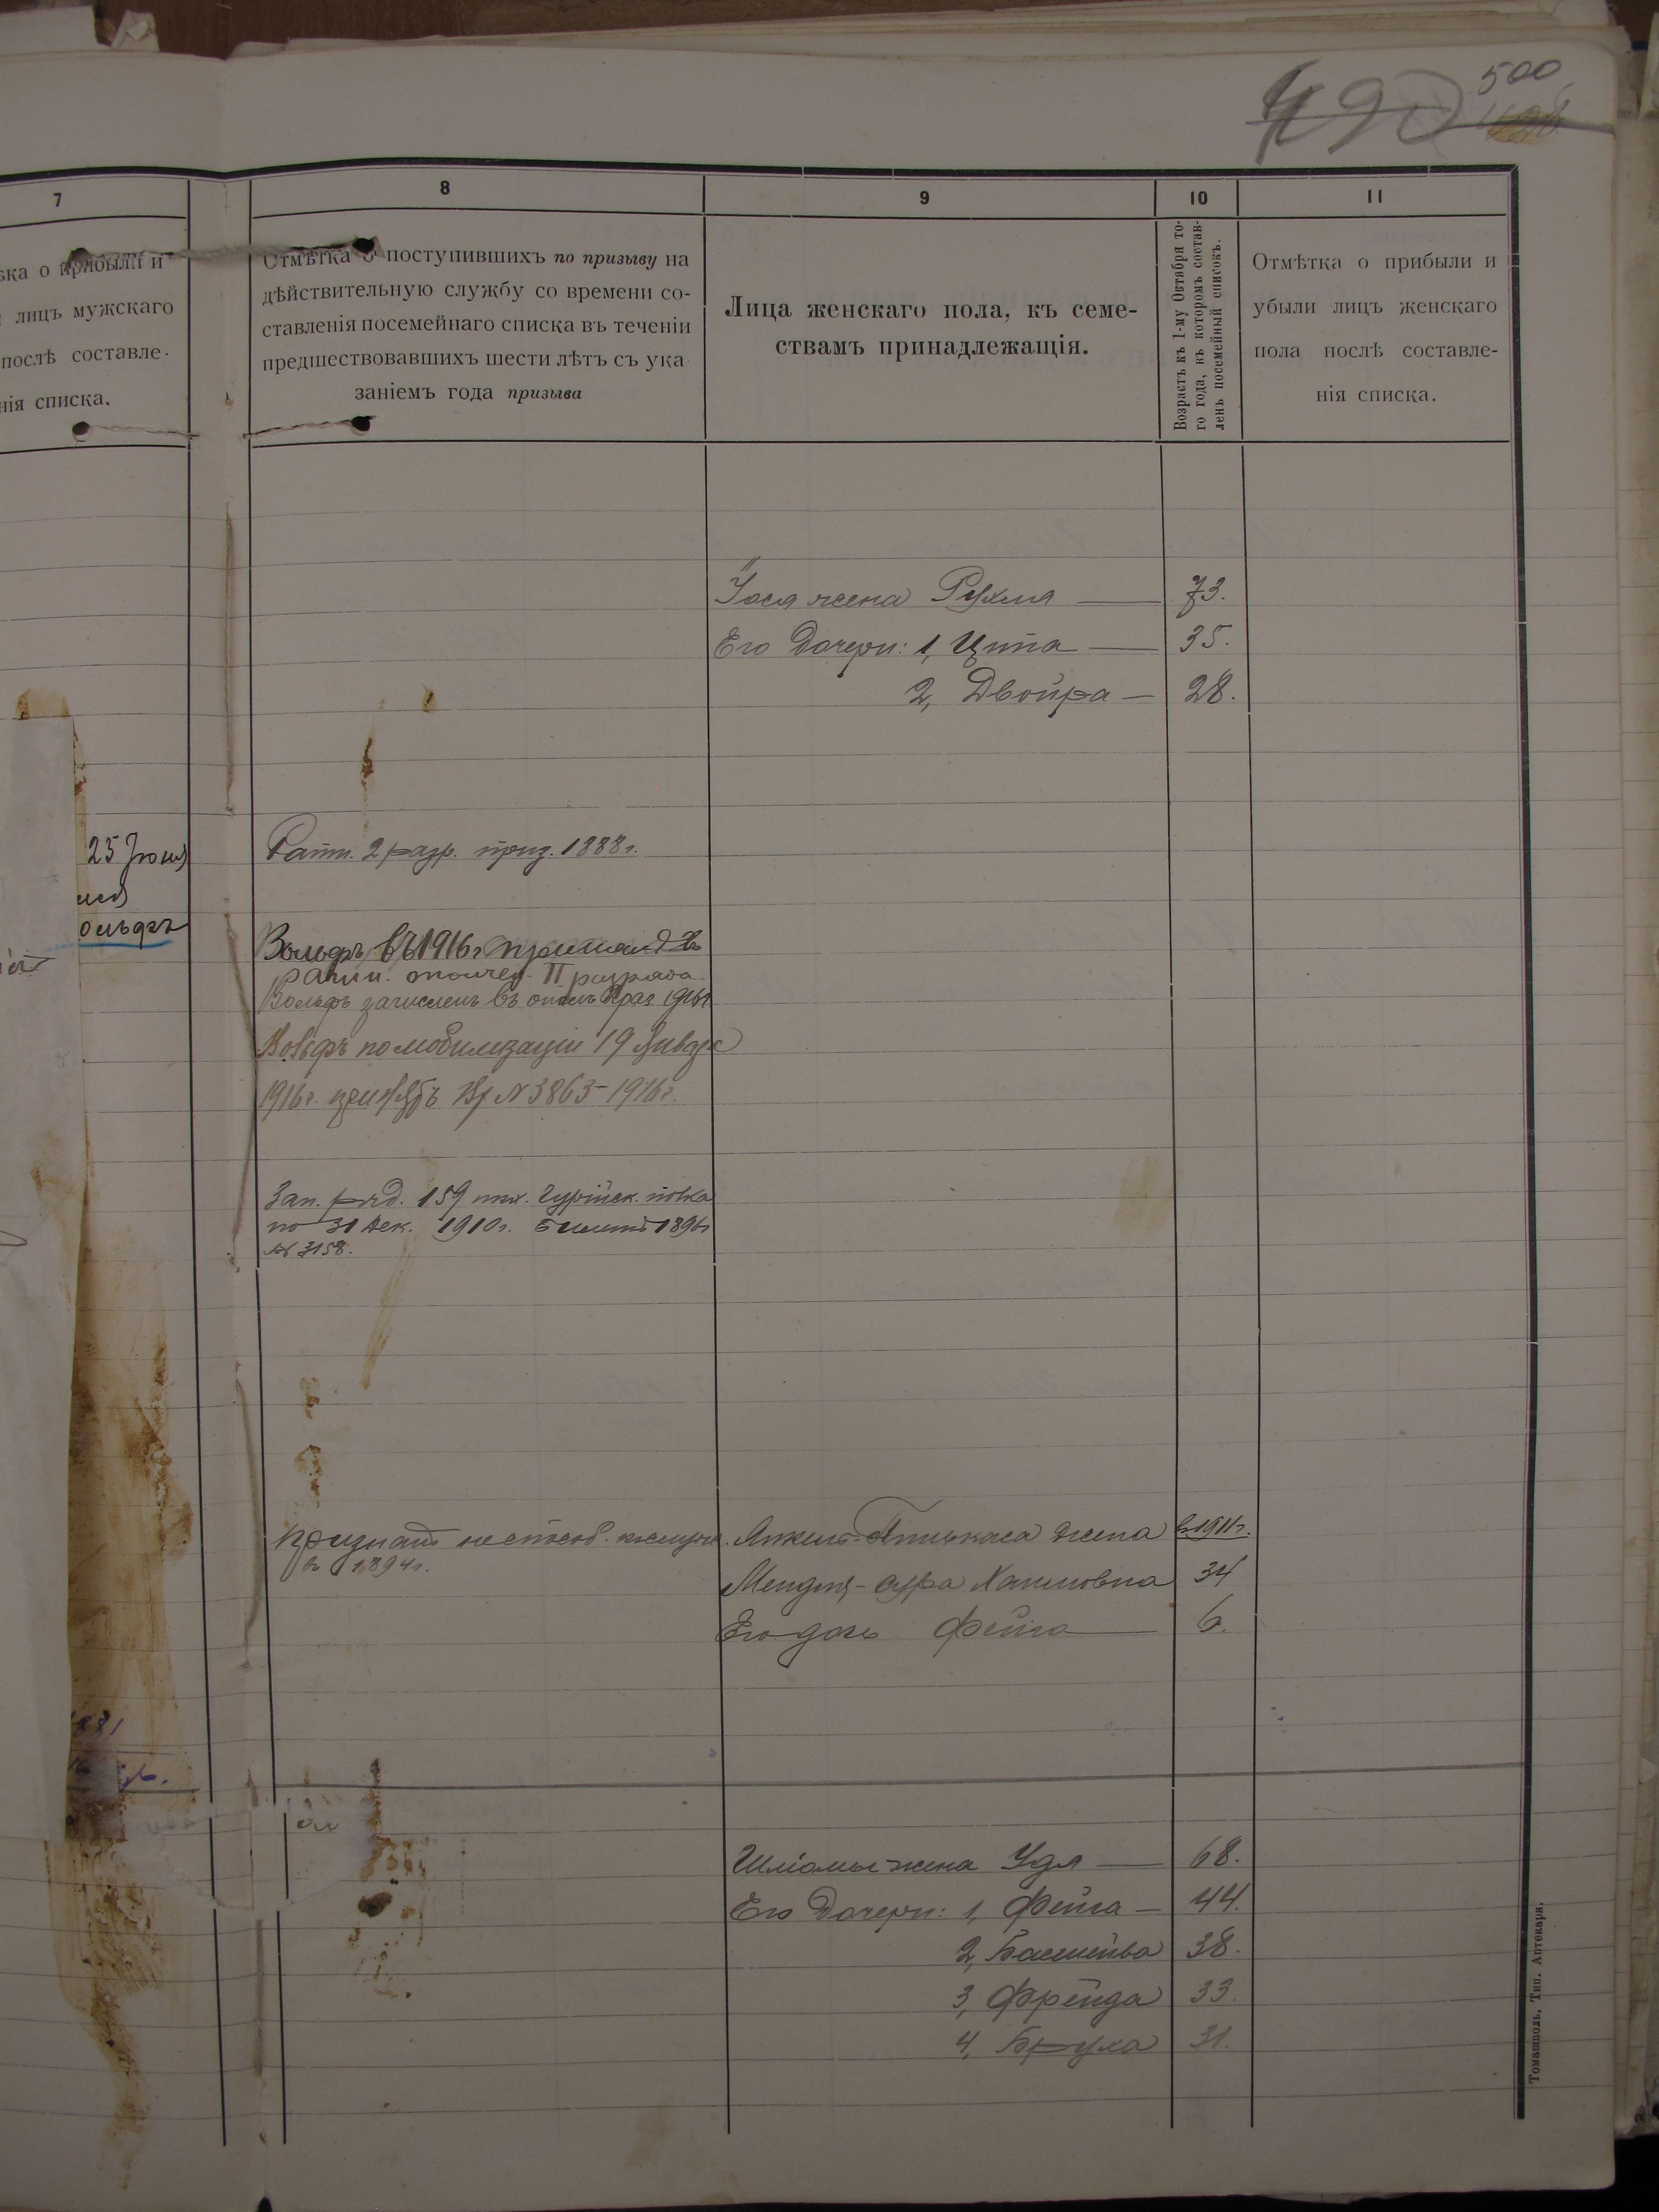 500
490
7
8
9
10
11
вка о прибыли и
лицъ мужскаго
послѣ составле-
нія списка.
Отмѣтка о поступившихъ по призыву на
дѣйствительную службу со времени со-
ставленія посемейнаго списка въ теченіи
предшествовавшихъ шести лѣтъ съ ука
заніемъ года призыва
Лица женскаго пола, къ семе-
ствамъ принадлежащія.
Возрастъ къ 1-му Октября то-
го года, въ которомъ состав-
ленъ посемейный списокъ.
Отмѣтка о прибыли и
убыли лицъ женскаго
пола послѣ составле-
нія списка.
жена Рухля 73.
Его дочери: 1, Ципа 35.
2, Двойра 28.
25 Іюня
Ратн. 2 разр. приз. 1888 г.
ольфъ
Вольфъ въ 1916 г
ратн. ополчен. II разряда
Вольфъ зачисленъ въ ополч. II раз 1916 г
Вольфъ по мобилизаціи 19 Января
1916 г. принятъ № 3863-1916 г.
Зап. ряд. 159 пѣх. Гурійск. полка
по 31 Дек. 1910 г. Билетъ 1896 г
№ 3158.
признанъ неспособ. къ служб.
въ 1894 г.
Янкель-Пинькаса жена в 1911 г.
Мендля-Сура Хаимовна 34
Его дочь Фейга 6.
Шліомы жена Удя 68.
Его дочери: 1, Фейга 44.
2, Басшейва 38.
3, Фрейда 33.
4, Бруха 31.
Томашполь, Тип. Аптекаря.